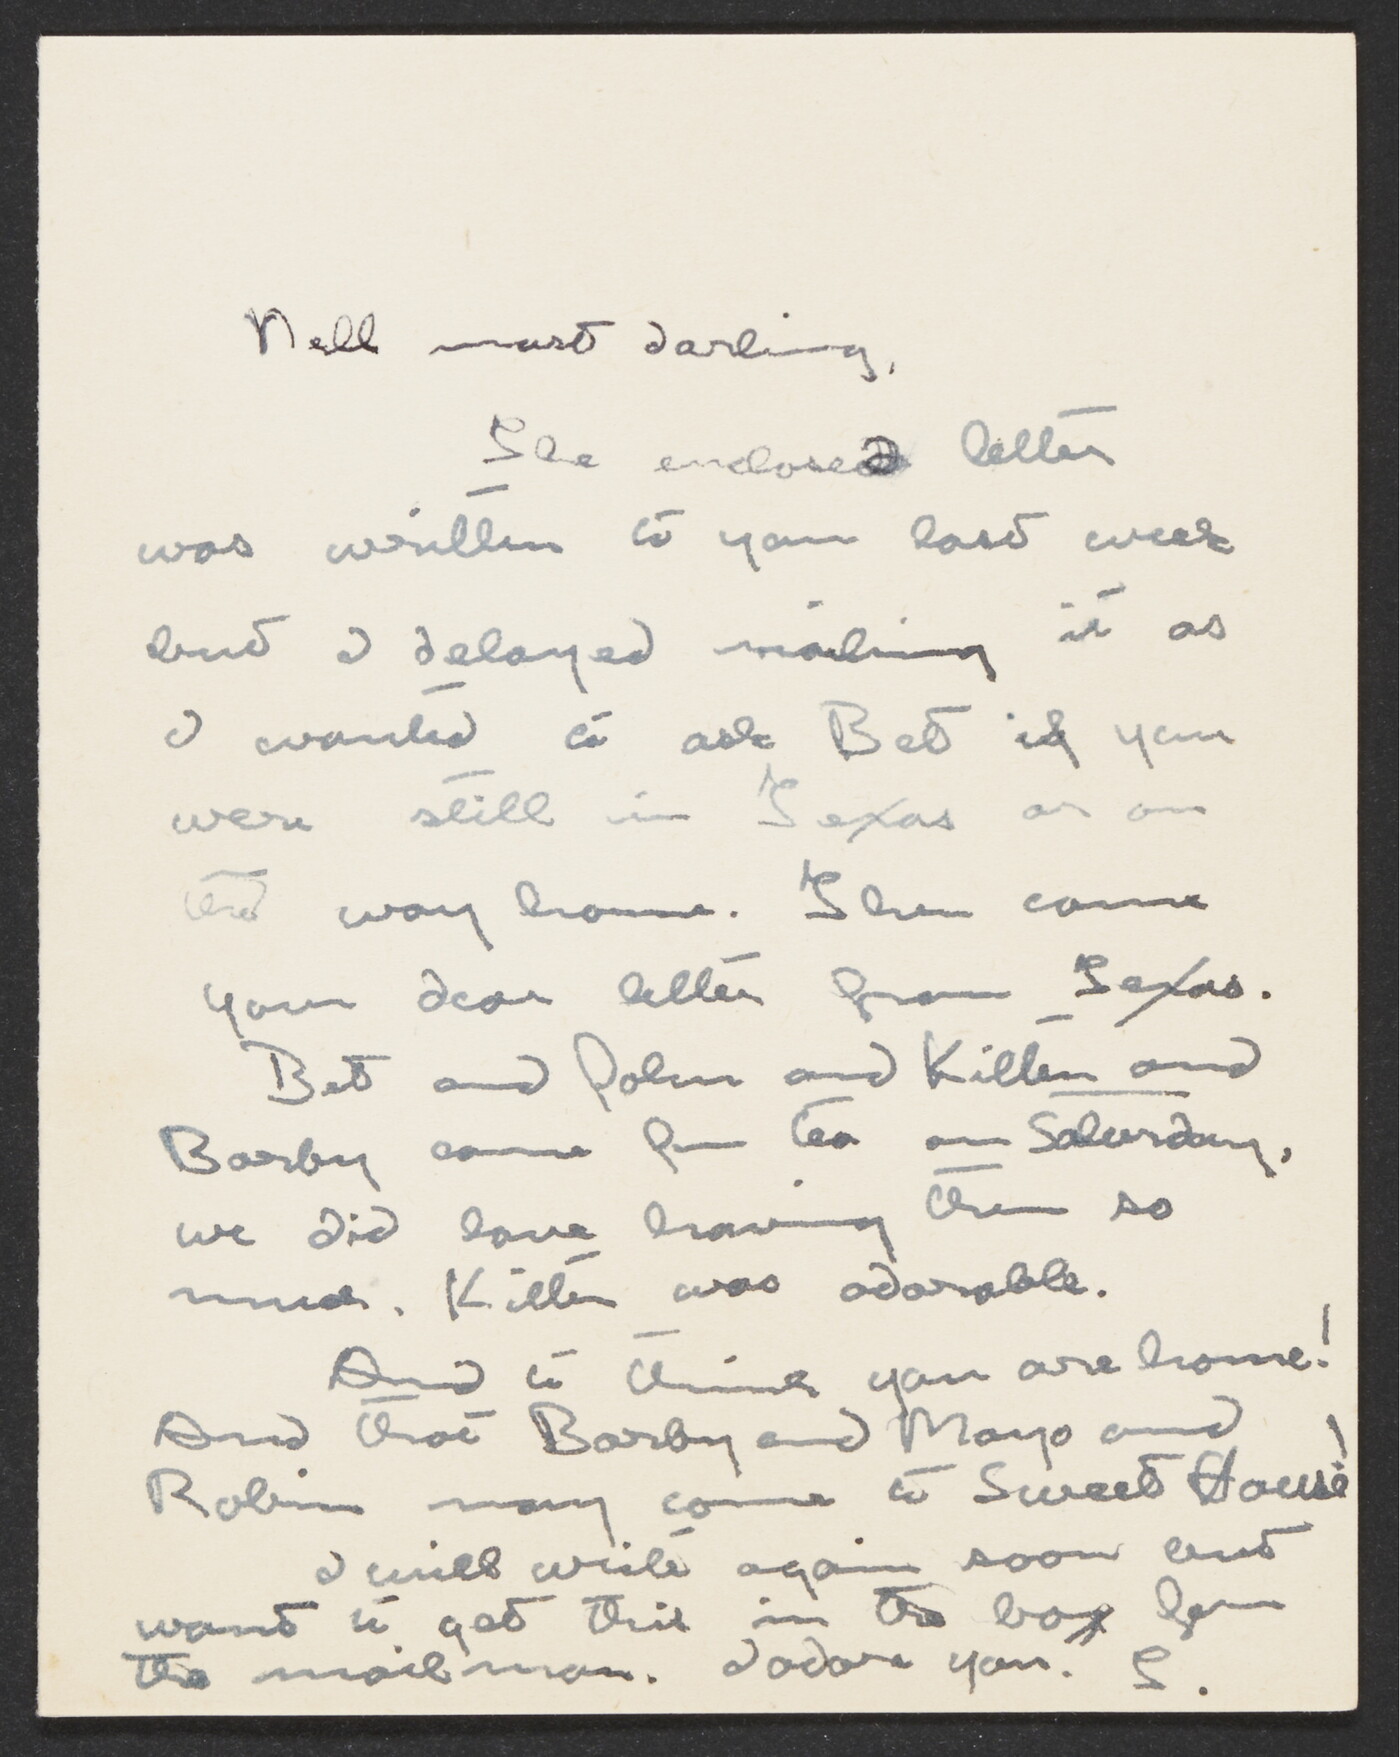 Nell most darling,
The enclosed letter
was written to you last week
but I delayed mailing it as
I wanted to ask Bet if you
were still in Texas or on
the way home. Then came
your dear letter from Texas.
Bet and John and Kitten and
Barby came for tea on Saturday,
we did love having them so
much. Kitten was adorable.
And to think you are home!
And that Barby and Mayo and
Robin may come to Sweet House!
I will write again soon but
want to get this in the box for
the mail man. I adore you. T.